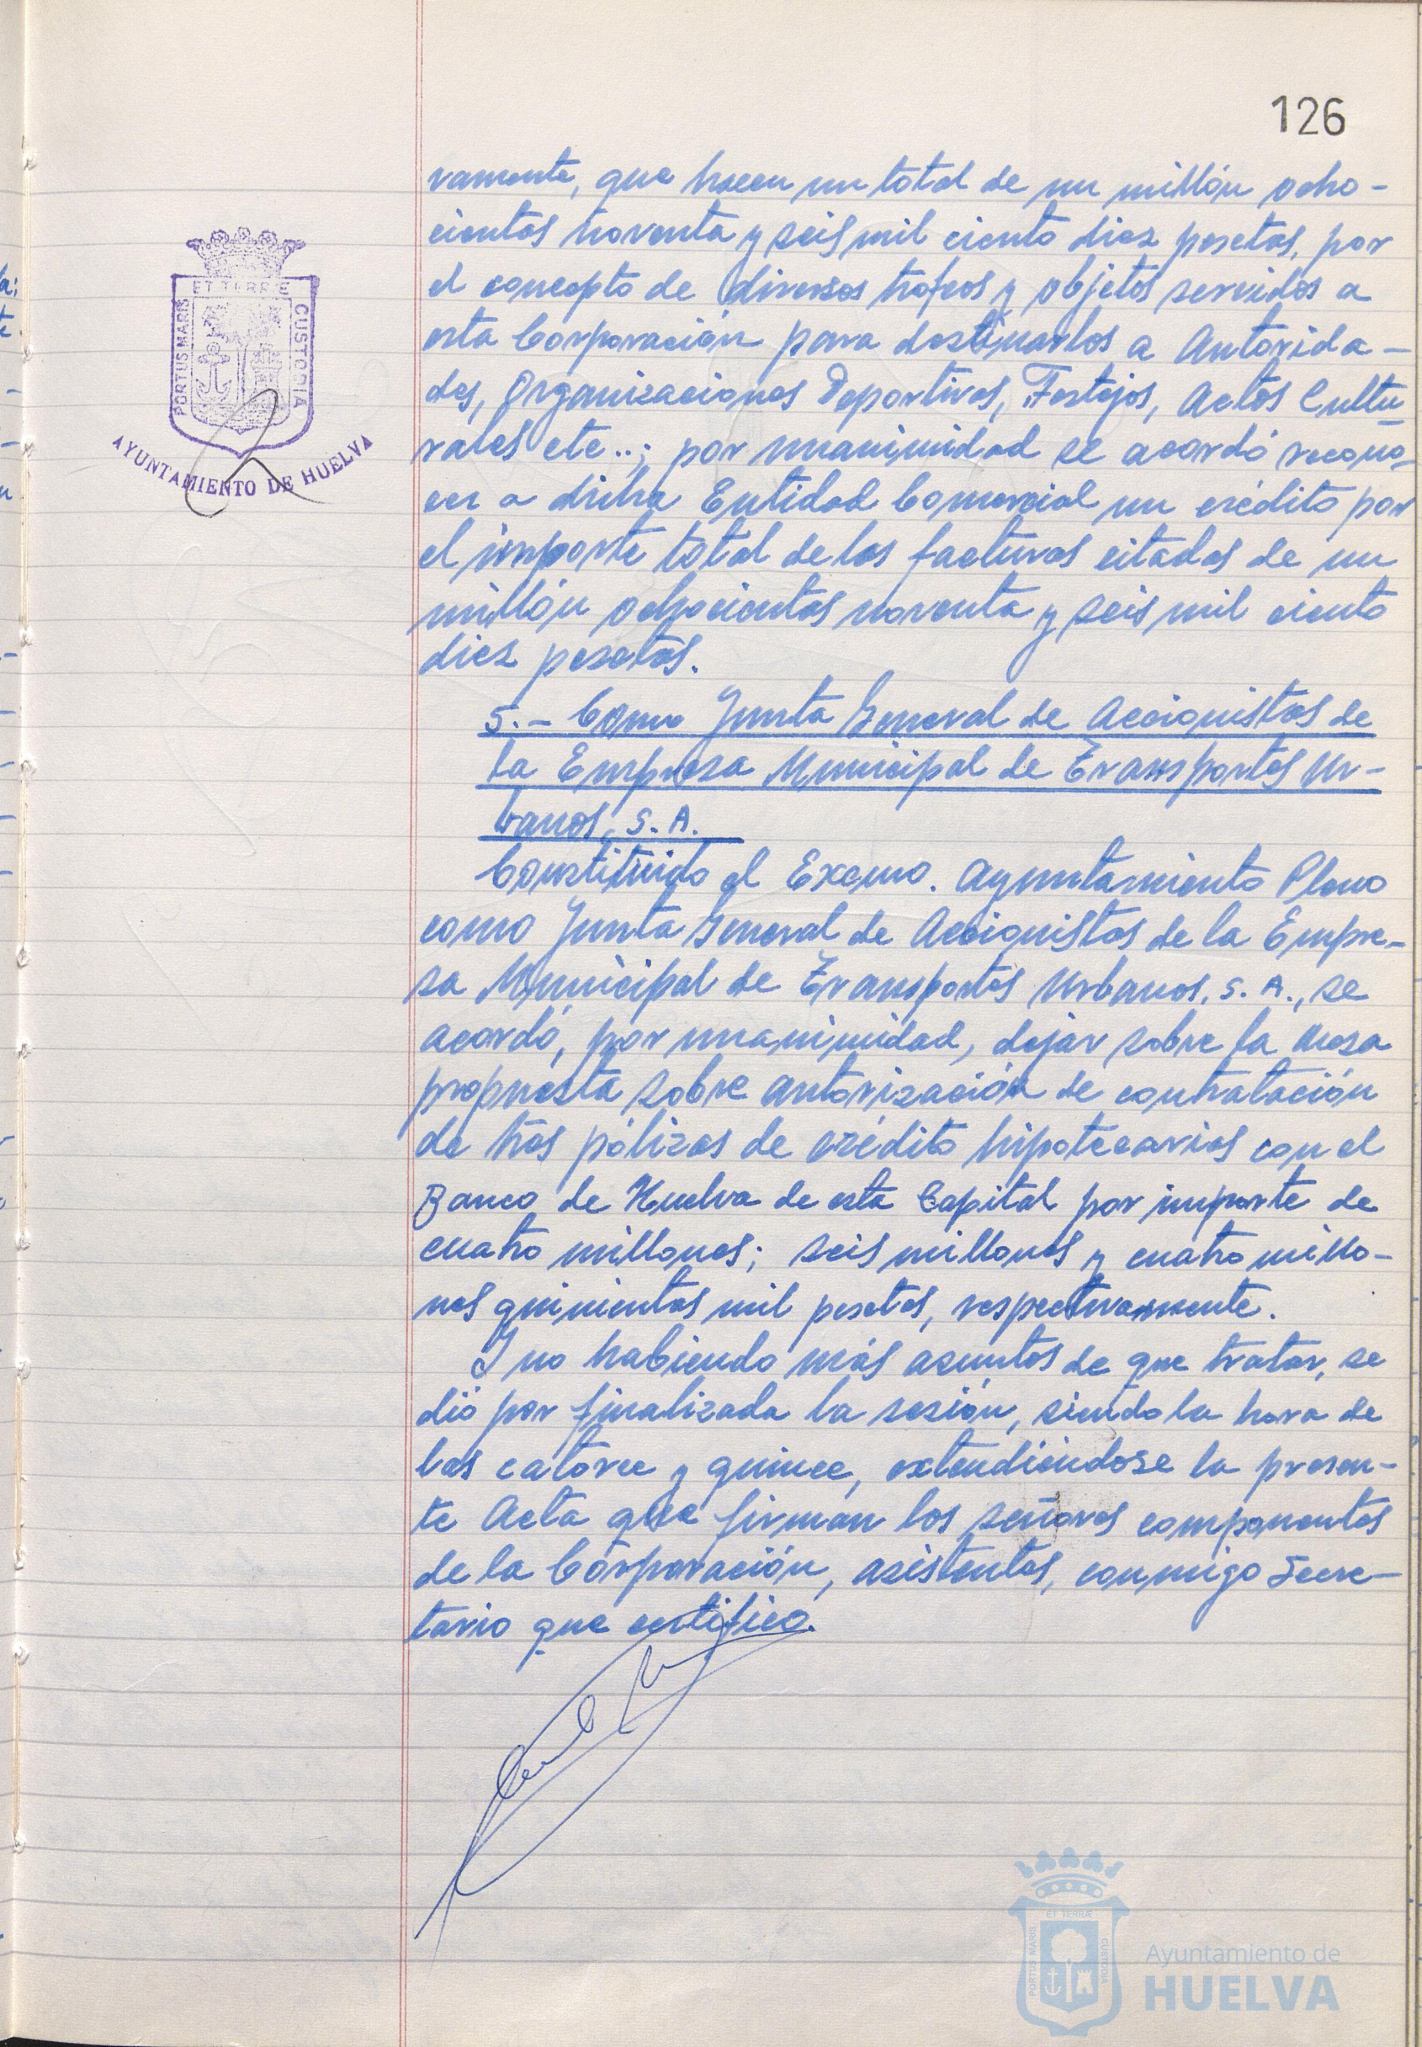 126
vamente, que hacen un total de un millón ocho-
cientas noventa y seis mil ciento diez pesetas, por
el concepto de diversos trofeos y objetos servidos a
esta Corporación para destinarlos a Autorida-
des, Organizaciones Deportivas, Festejos, Actos Cultu-
rales etc..; por unanimidad se acordó recono-
cer a dicha Entidad Comercial un crédito por
el importe total de las facturas citadas de un
millón ochocientas noventa y seis mil ciento
diez pesetas.
5.- Como Junta General de Accionistas de
la Empresa Municipal de Transportes Ur-
banos, S.A.
Constituido el Excmo. Ayuntamiento Pleno
como Junta General de Accionistas de la Empre-
sa Municipal de Transportes Urbanos, S.A., se
acordó, por unanimidad, dejar sobre la Mesa
propuesta sobre autorización de contratación
de tres pólizas de crédito hipotecarios con el
Banco de Huelva de esta Capital por importe de
cuatro millones; seis millones y cuatro millo-
nes quinientas mil pesetas, respectivamente.
Y no habiendo más asuntos de que tratar, se
dió por finalizada la sesión, siendo la hora de
las catorce y quince, extendiéndose la presen-
te Acta que firman los señores componentes
de la Corporación, asistentes, conmigo Secre-
tario que certifico.
PORTUS MARIS
ET TERRÆ
CUSTODIA
AYUNTAMIENTO DE HUELVA
PORTUS MARIS
ET TERRÆ
CUSTODIA
Ayuntamiento de
HUELVA